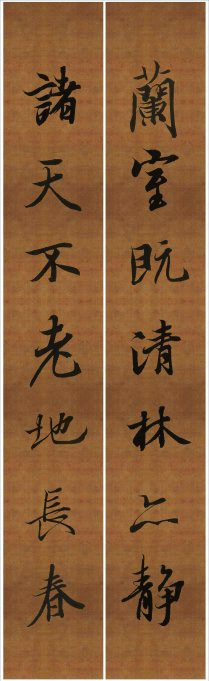 蘭室既清林亦靜
諸天不老地長春